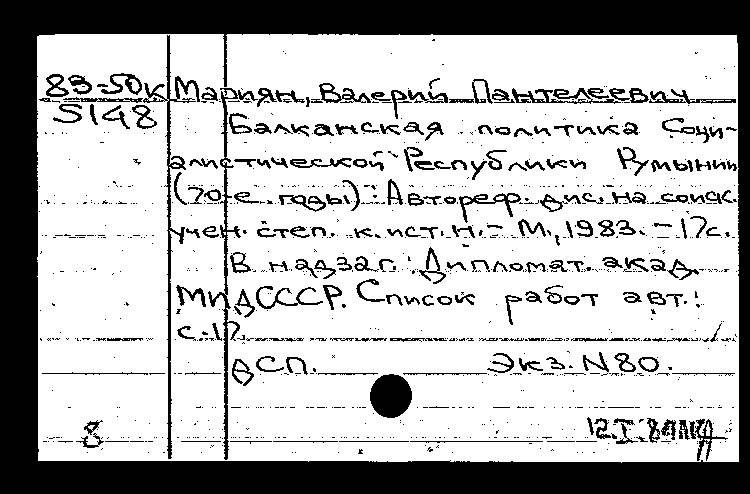 83-50к Мариян, Валерий Пантелеевич
5148 Балканская политика Соци-
алистической Республики Румынии
(70-е годы) : Автореф. дис. на соиск.
учен. степ. к. ист. н. - М., 1983. - 17с.
В надзаг.: Дипломат. акад.
МИД СССР. Список работ авт.:
с. 17.
ДСП. Экз. N80.
8 12.I.84